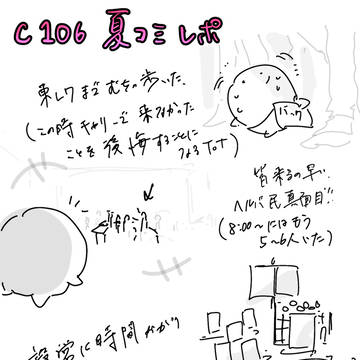 C106 夏コミ レポ
東レワまで むちゃ歩いた
(この時キャリーで来なかった
ことを後悔することに
なるToT)
バッグ
皆来るの早い
ヘルバ民真面目!!
(8:00〜にはもう
5〜6人いた)
設営に時間かかり